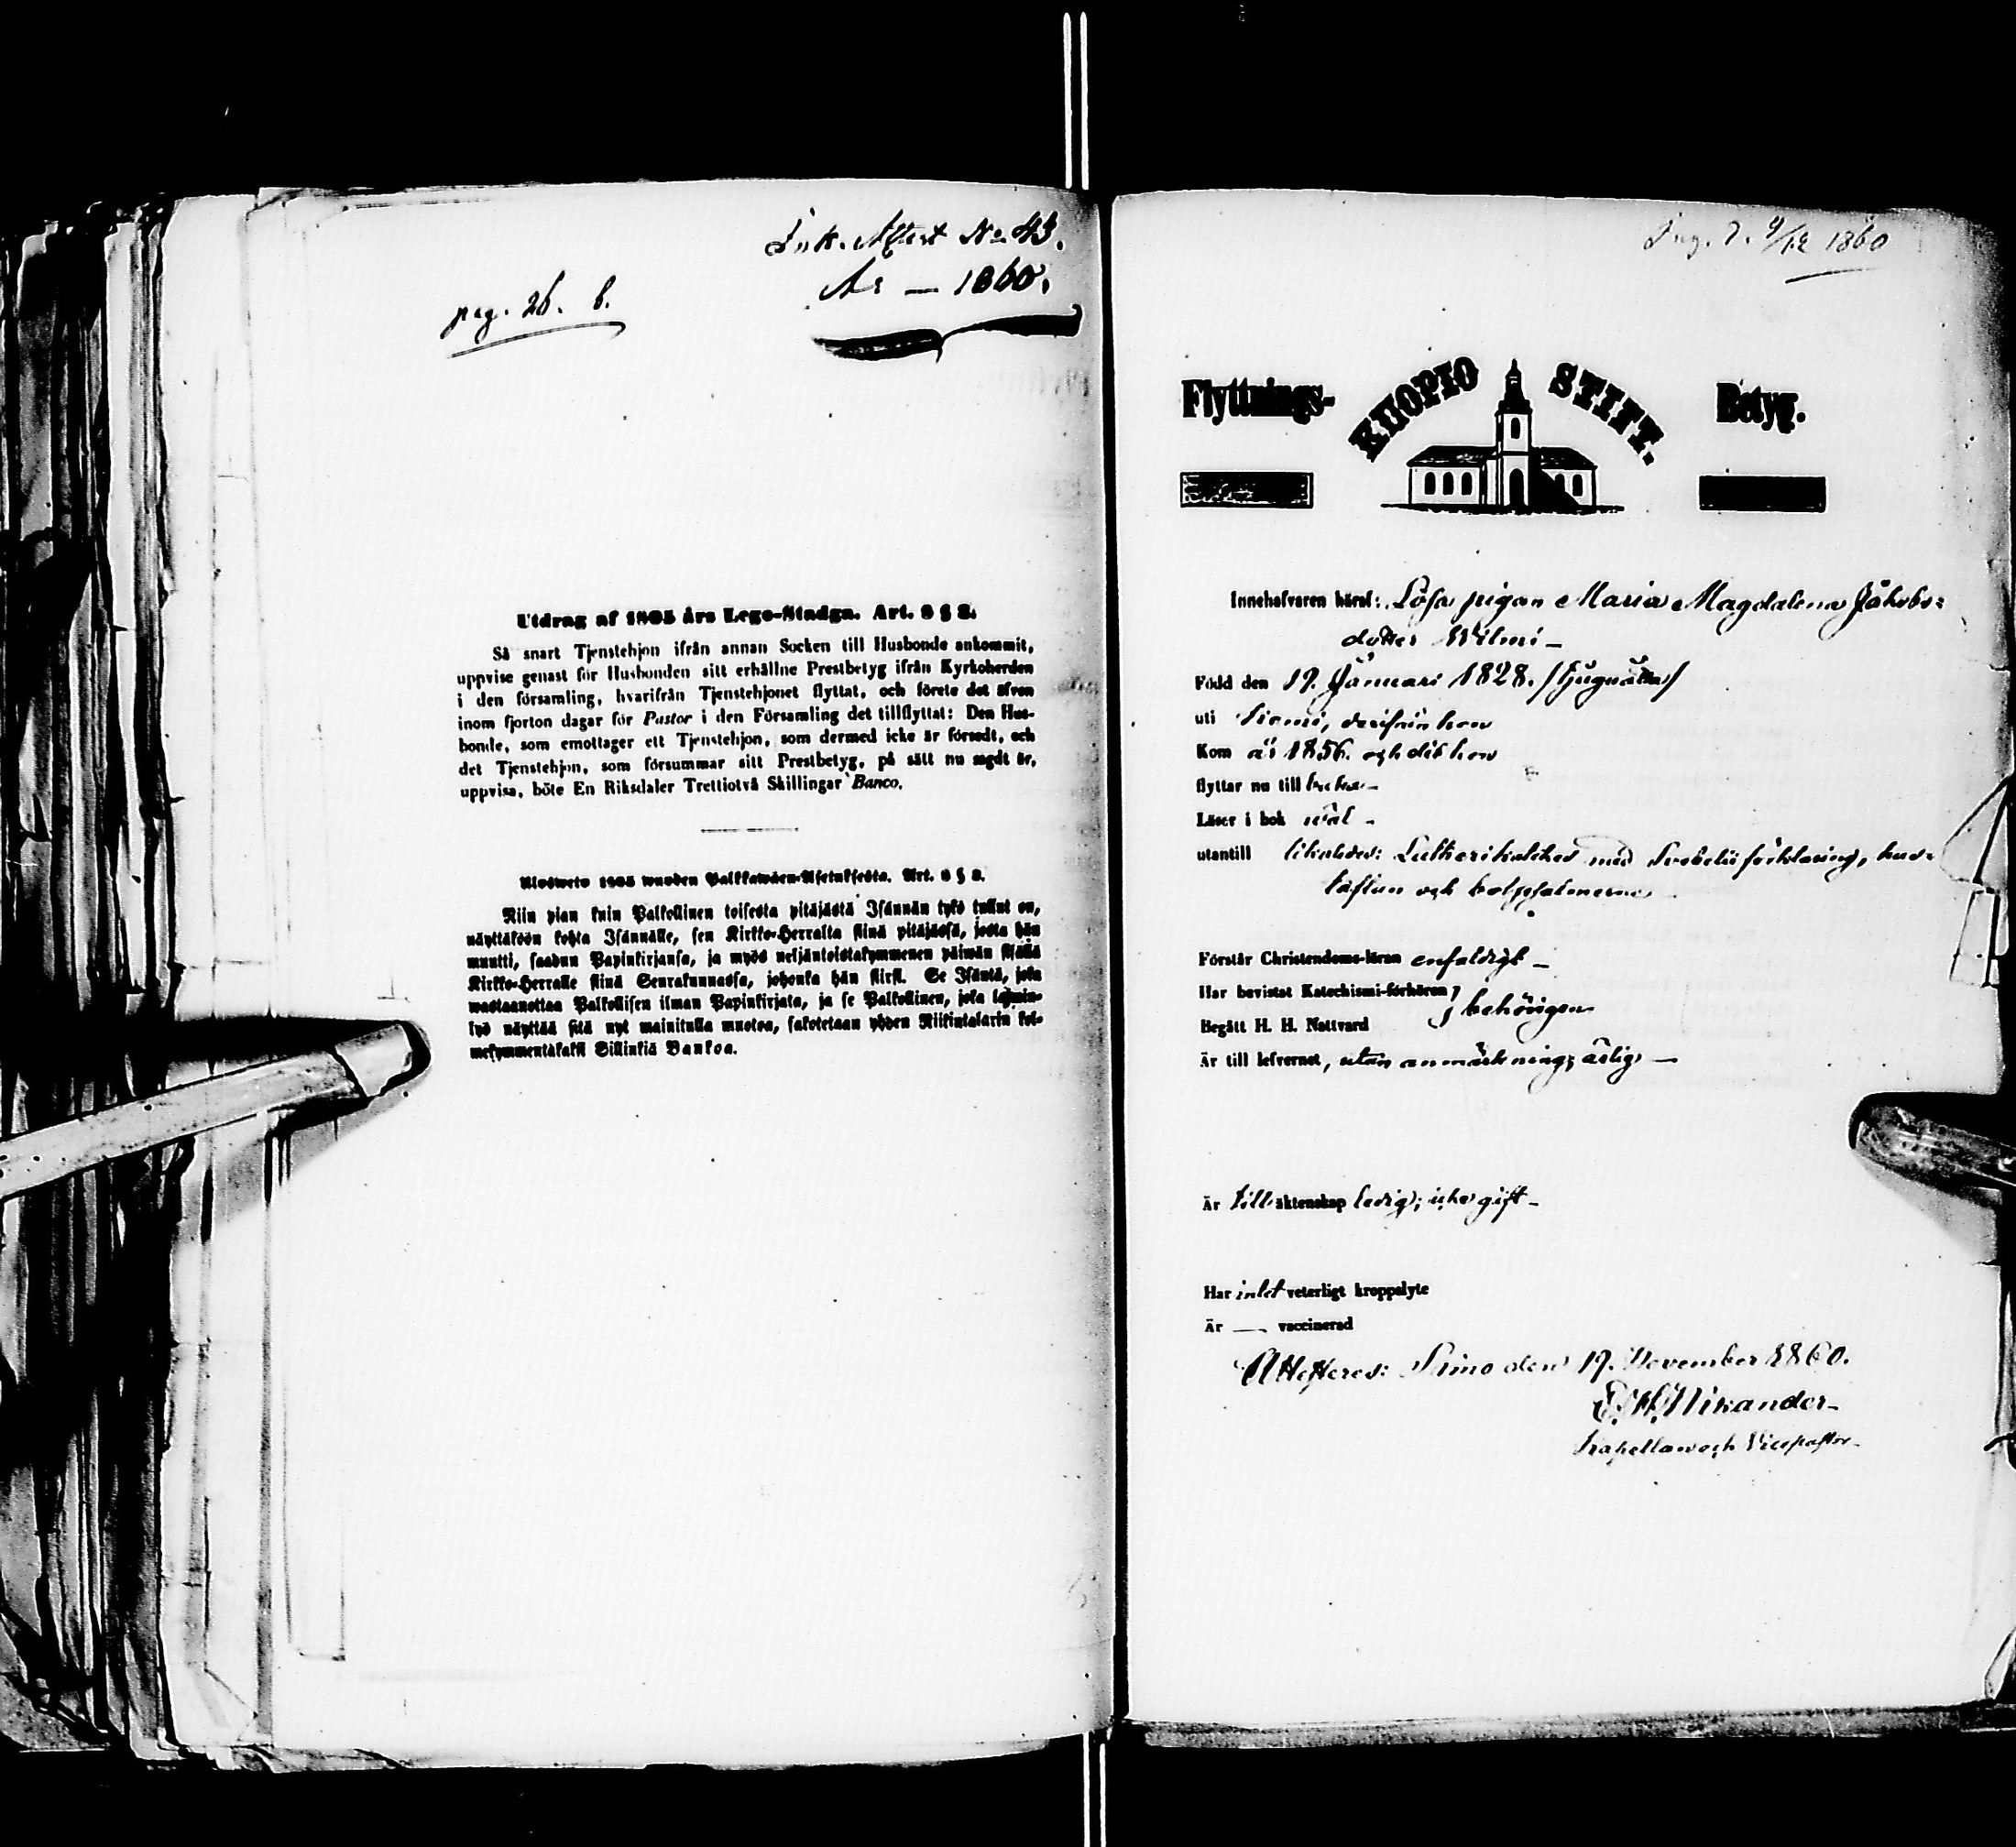 Ink. Attest No 43.
År — 1860.
pag. 26. b.
Utdrag af 1805 års Lego-Stadga. Art. 6 § 2.
Så snart Tjenstehjon ifrån annan Socken till Husbonde ankommit,
uppvise genast för Husbonden sitt erhållne Prestbetyg ifrån Kyrkoherden
i den församling, hvarifrån Tjenstehjonet flyttat, och förete det äfven
inom fjorton dagar för Pastor i den Församling det tillflyttat: Den Hus-
bonde, som emottager ett Tjenstehjon, som dermed icke är försedt, och
det Tjenstehjon, som försummar sitt Prestbetyg, på sätt nu sagdt är,
uppvisa, böte En Riksdaler Trettiotvå Skillingar Banco.
Ulosweto 1805 wuoden Palkkawäen-Asetuksesta. Art. 6 § 2.
Niin pian kuin Palkollinen toisesta pitäjästä Isännän tykö tullut on,
näyttäköön kohta Isännälle, sen Kirkko-Herralta siinä pitäjässä, josta hän
muutti, saadun Papinkirjansa, ja myös neljäntoistakymmenen päiwän sisällä
Kirkko-Herralle siinä Seurakunnassa, johonka hän siirsi. Se Isäntä, joka
wastaanottaa Palkollisen ilman Papinkirjata, ja se Palkollinen, joka laimin-
lyö näyttää sitä nyt mainitulla muotoa, sakotetaan yhden Riikintalarin kol-
mekymmentäkaksi Sillinkiä Bankoa.
Ing. d. 9/12 1860
Flyttnings- KUOPIO STIFT. Betyg.
Innehafvaren häraf: Lösa pigan Maria Magdalena Jakobs=
dotter Wilmi —
Född den 19. Januari 1828. /tjuguåtta/
uti Kiemi, derifrån hon
Kom år 1856. och dit hon
flyttar nu till baka —
Läser i bok wäl -
utantill likaledes: Lutheri kateches med Svebelii förklaring, hus=
taflan och botpsalmerne
Förstår Christendoms-läran enfaldigt —
Har bevistat Katechismi-förhören
Begått H. H. Nattvard } behörigen
Är till lefvernet, utan anmärkning; ärlig —
Är till äktenskap ledig; icke gift —
Har intet veterligt kroppslyte
Är — vaccinerad
Attesteras: Simo den 19. November 1860.
Nikander
Kapellan och Vicepastor